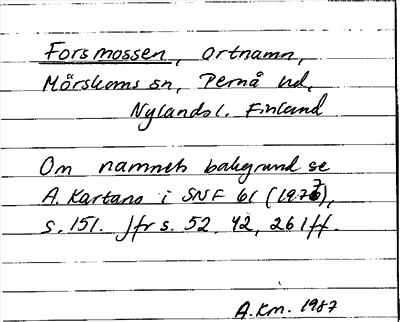 Forsmossen, ortnamn,
Mörskoms sn, Pernå hd,
Nylands l. Finland
Om namnets bakgrund se
A. Kartano i SNF 61 (1973),
s. 151. Jfr s. 52, 42, 261 ff.
A.Km. 1987